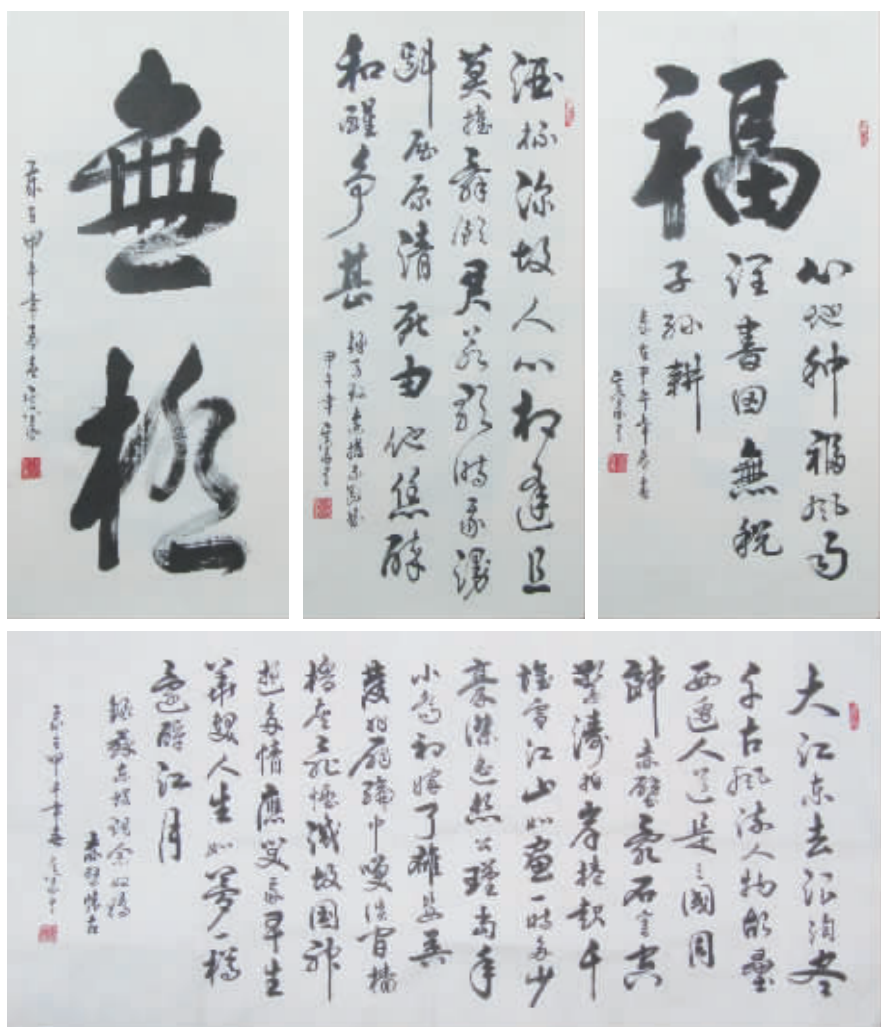 無極
歲在甲午年孟春
酒杯深故人心相逢且
莫推辭飲君若歌時我漫
斟屈原清死由他恁醉
和醒爭甚
甲午年
福
心地種福風雨
書田無稅
子孫耕
歲在甲午年春書
大江東去浪淘盡
千古風流人物故壘
西邊人道是三國周
郎赤壁亂石穿空
驚濤拍岸捲起千
堆雪江山如畫一時多少
豪傑遙想公瑾當年
小喬初嫁了雄姿英
發羽扇綸巾談笑間檣
櫓灰飛煙滅故國神
遊多情應笑我早生
華髮人生如夢一樽
還酹江月
錄蘇東坡詞念奴嬌
赤壁懷古
歲在甲午年春